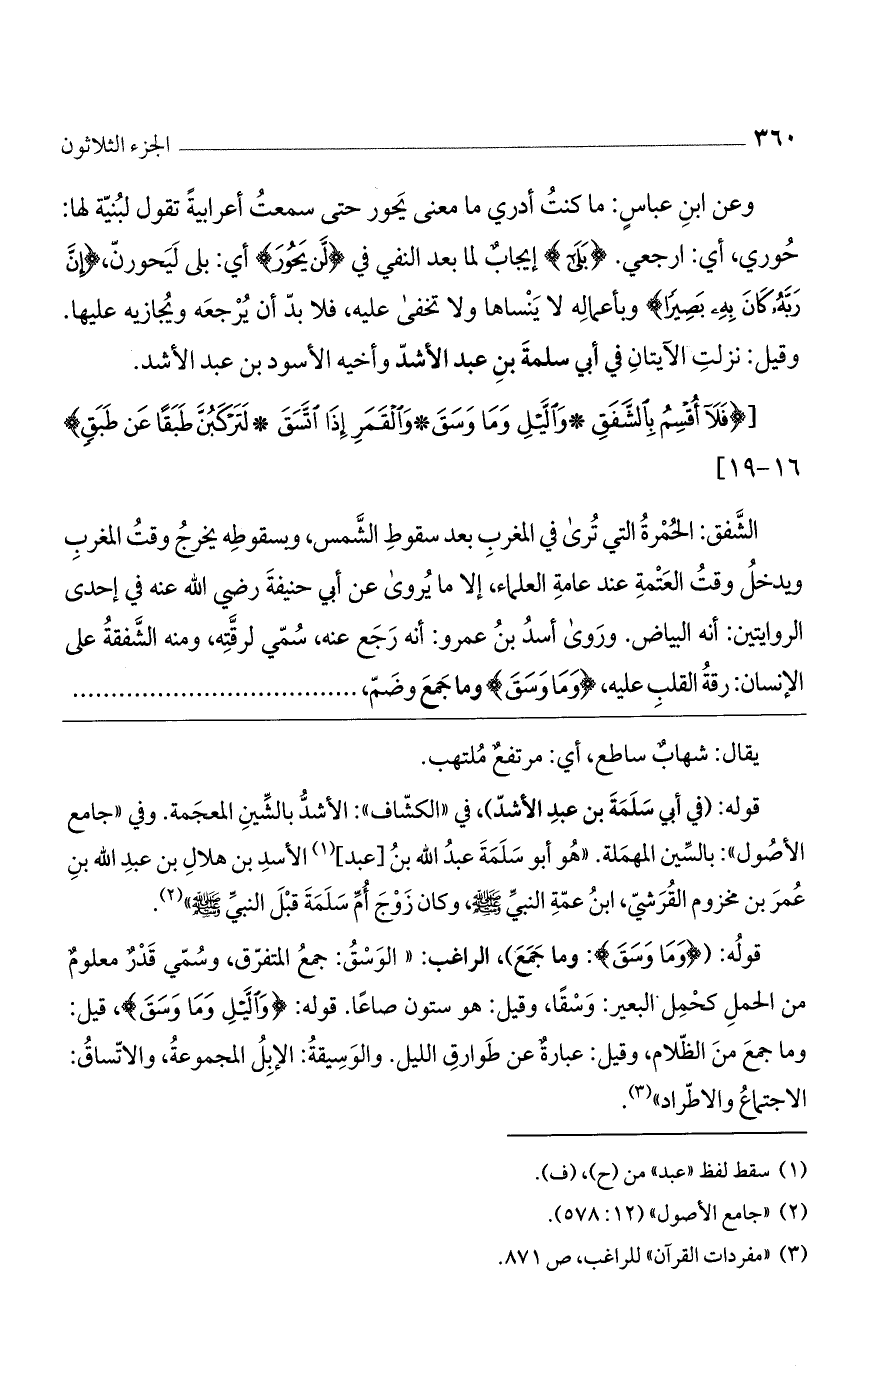 ٣٦٠ الجزء الثلاثون
وعن ابنِ عباسٍ: ما كنتُ أدري ما معنى يَحور حتى سمعتُ أعرابيةً تقول لبُنيّة لها:
حُوري، أي: ارجعي. ﴿بَلَىٰٓ﴾ إيجابٌ لما بعد النفي في ﴿لَّن يَحُورَ﴾ أي: بلى لَيَحورنّ، ﴿إِنَّ
رَبَّهُۥ كَانَ بِهِۦ بَصِيرًا﴾ وبأعمالِه لا يَنْساها ولا تخفىٰ عليه، فلا بدّ أن يُرْجعَه ويُجازيه عليها.
وقيل: نزلتِ الآيتانِ في أبي سلمةَ بنِ عبد الأشدّ وأخيه الأسود بن عبد الأشد.
[﴿فَلَآ أُقْسِمُ بِٱلشَّفَقِ * وَٱلَّيْلِ وَمَا وَسَقَ * وَٱلْقَمَرِ إِذَا ٱتَّسَقَ * لَتَرْكَبُنَّ طَبَقًا عَن طَبَقٍ﴾
١٦-١٩]
الشَّفق: الحُمْرةُ التي تُرىٰ في المغربِ بعد سقوطِ الشَّمس، وبسقوطِه يخرجُ وقتُ المغربِ
ويدخلُ وقتُ العَتْمةِ عند عامةِ العلماء، إلا ما يُروىٰ عن أبي حنيفةَ رضي الله عنه في إحدى
الروايتين: أنه البياض. ورَوىٰ أسدُ بنُ عمرو: أنه رَجَع عنه، سُمّي لرقَّتِه، ومنه الشَّفقةُ على
الإنسان: رقةُ القلبِ عليه، ﴿وَمَا وَسَقَ﴾ وما جَمعَ وضَمّ، ....................................
يقال: شهابٌ ساطع، أي: مرتفعٌ مُلتهب.
قوله: (في أبي سَلَمَةَ بن عبدِ الأشدّ)، في «الكشّاف»: الأشدُّ بالشِّينِ المعجَمة. وفي «جامع
الأصُول»: بالسِّين المهمَلة. «هُو أبو سَلَمَةَ عبدُ الله بنُ [عبد](١) الأسدِ بن هلالِ بن عبدِ الله بنِ
عُمرَ بن مخزوم القُرَشيّ، ابنُ عمّةِ النبيِّ ﷺ، وكان زَوْجَ أُمِّ سَلَمَةَ قبْلَ النبيِّ ﷺ»(٢).
قولُه: (﴿وَمَا وَسَقَ﴾: وما جَمَعَ)، الراغب: « الوَسْقُ: جمعُ المتفرّق، وسُمّي قَدْرٌ معلومٌ
من الحملِ كحْمِل البعير: وَسْقًا، وقيل: هو ستون صاعًا. قوله: ﴿وَٱلَّيْلِ وَمَا وَسَقَ﴾، قيل:
وما جمعَ منَ الظّلام، وقيل: عبارةٌ عن طَوارقِ الليل. والوَسِيقةُ: الإبلُ المجموعةُ، والاتّساقُ:
الاجتماعُ والاطّراد»(٣).
(١) سقط لفظ «عبد» من (ح)، (ف).
(٢) «جامع الأصول» (١٢: ٥٧٨).
(٣) «مفردات القرآن» للراغب، ص ٨٧١.